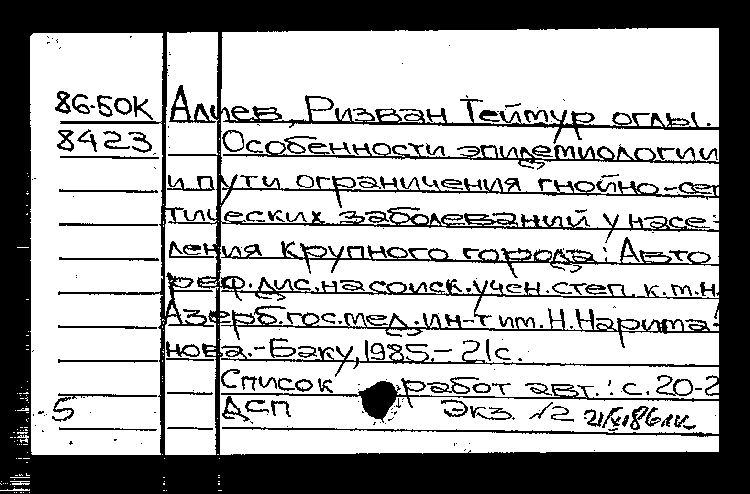 86-50К Алиев, Ризван Теймур оглы.
8423 Особенности эпидемиологии
и пути ограничения гнойно-сеп
тических заболеваний у насе-
ления крупного города: Авто
реф.дис.на соиск.учен.степ. к.м.н
Азерб.гос.мед.ин-т им.Н.Нарима-
нова.-Баку,1985.-21с.
Список работ авт.: с.20-2
5 ДСП Экз. №2